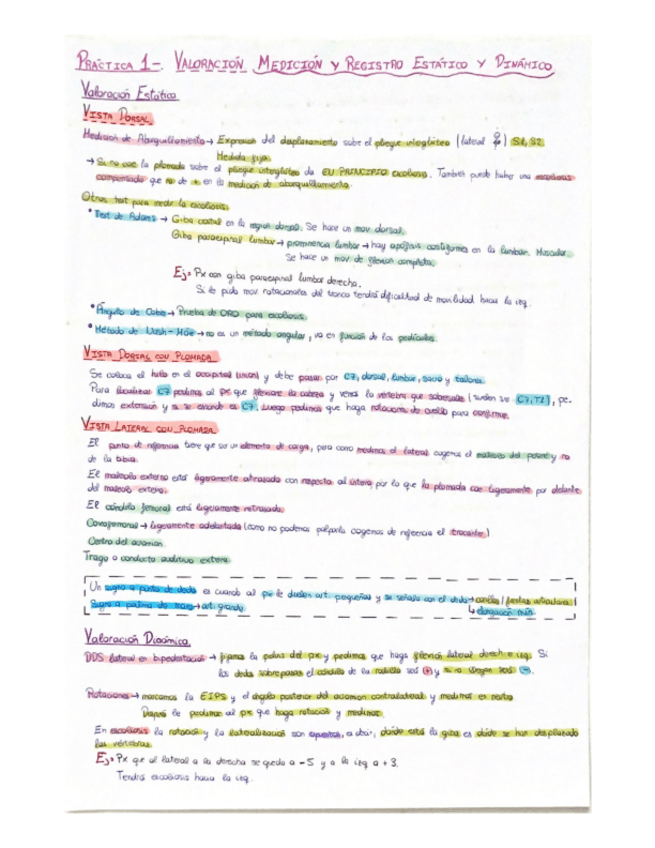 PRÁCTICA 1-. VALORACIÓN, MEDICIÓN Y REGISTRO ESTÁTICO Y DINÁMICO.
Valoración Estática.
VISTA DORSAL.
Medición de Abarquillamiento → Expresión del desplazamiento sobre el pliegue interglúteo (lateral) S1, S2.
Medida fija.
→ Si no cae la plomada sobre el pliegue interglúteo da EN PRINCIPIO escoliosis. También puede haber una escoliosis
compensada que no de + en la medición de abarquillamiento.
Otros test para medir la escoliosis.
• Test de Adams → Giba costal en la región dorsal. Se hace un mov. dorsal.
Giba paraespinal lumbar → prominencia lumbar → hay apófisis costiformes en la lumbar. Muscular.
Se hace un mov de flexión completa.
Ej: Px con giba paraespinal lumbar derecha.
Si le pido mov. rotacionales del tronco tendrá dificultad de movilidad hacia la izq.
• Ángulo de Cobb → Prueba de ORO para escoliosis.
• Método de Nash-Moe → no es un método angular, va en función de los pedículos.
VISTA DORSAL CON PLOMADA.
Se coloca el hilo en el occipital (inion) y debe pasar por C7, dorsal, lumbar, sacro y talones.
Para localizar C7 pedimos al px que flexione la cabeza y vemos la vértebra que sobresale (suelen ser C7, T1), pe-
dimos extensión y si se esconde es C7. Luego pedimos que haga rotaciones de cuello para confirmar.
VISTA LATERAL CON PLOMADA.
El punto de referencia tiene que ser un elemento de carga, pero como medimos el lateral cogemos el maléolo del peroné y no
de la tibia.
El maléolo externo está ligeramente atrasado con respecto al interno, por lo que la plomada cae ligeramente por delante
del maléolo externo.
El cóndilo femoral está ligeramente retrasado.
Coxofemoral → ligeramente adelantada (como no podemos palparla cogemos de referencia el trocánter)
Centro del acromion.
Trago o conducto auditivo externo.
Un signo a punta de dedo es cuando al px le duelen art. pequeñas y se señala con el dedo → carillas / facetas articulares
Signo a palma de mano → art. grande. elongación mús.
Valoración Dinámica.
DDS lateral en bipedestación → fijamos la pelvis del px y pedimos que haga flexión lateral derech e izq. Si
los dedos sobrepasan el cóndilo de la rodilla será + y si no llegan será -.
Rotaciones → marcamos la EIPS y el ángulo posterior del acromion contralateral y medimos en recta.
Después le pedimos al px que haga rotación y medimos.
En escoliosis la rotación y la lateralización son opuestas, es decir, donde está la giba es donde se han desplazado
las vértebras.
Ej: Px que al lateral a la derecha se queda a -5 y a la izq a +3.
Tendrá escoliosis hacia la izq.